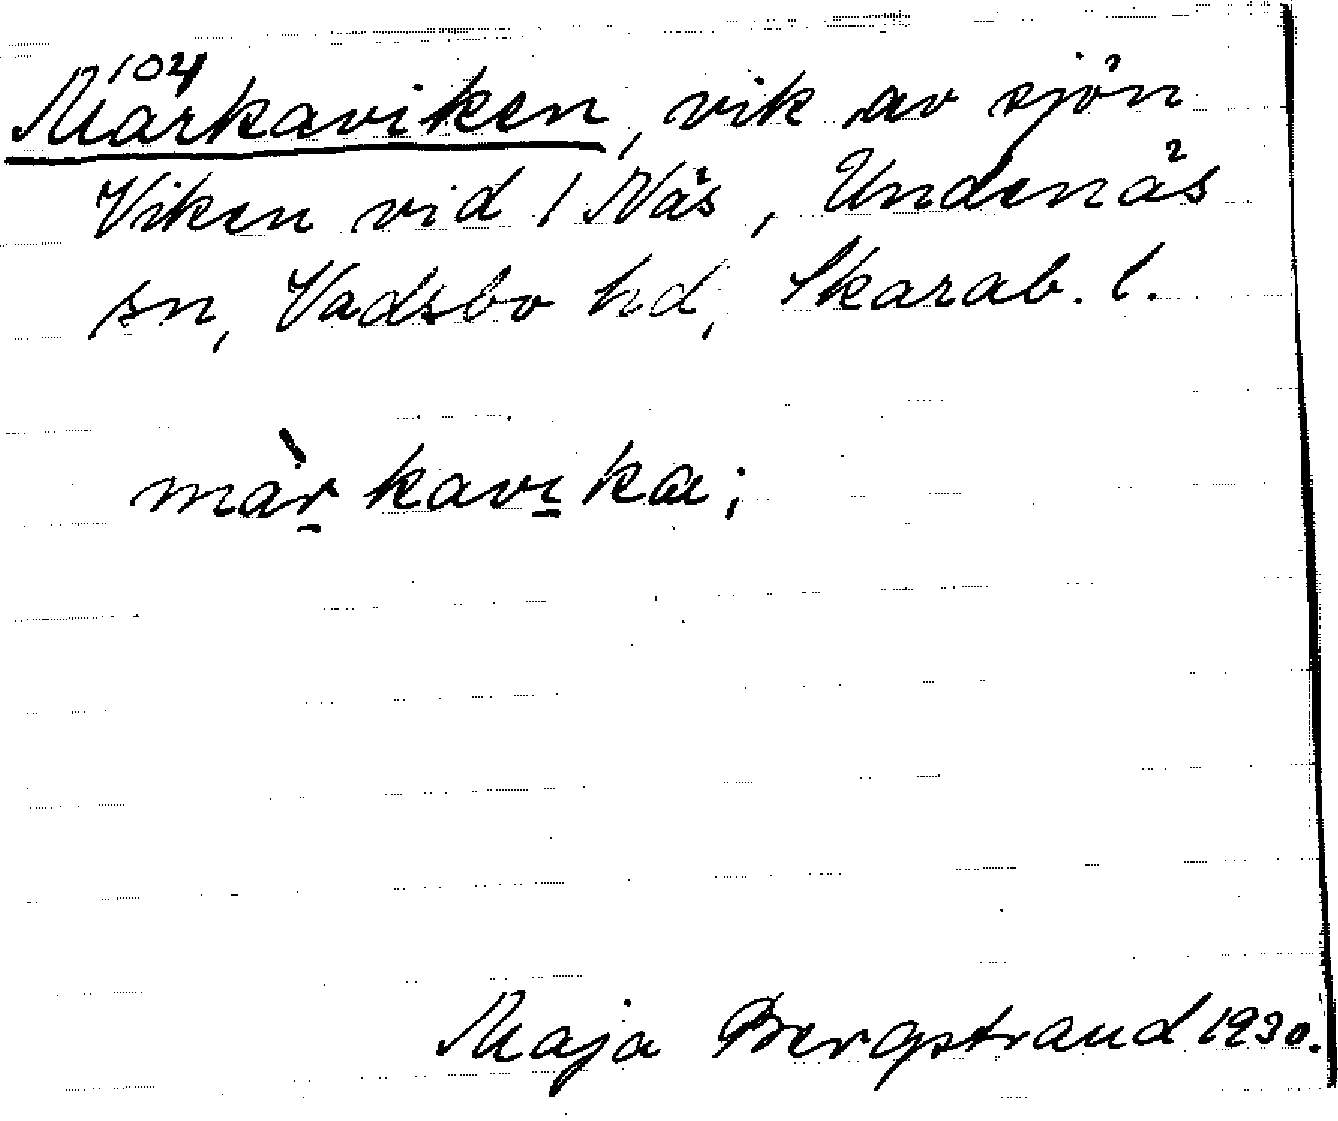 104
Märkaviken, vik av sjön
Viken vid 1 Näs, Undenäs
sn, Vadsbo hd, Skarab. l.
màr̲kavi̲ka;
Maja Bergstrand 1930.